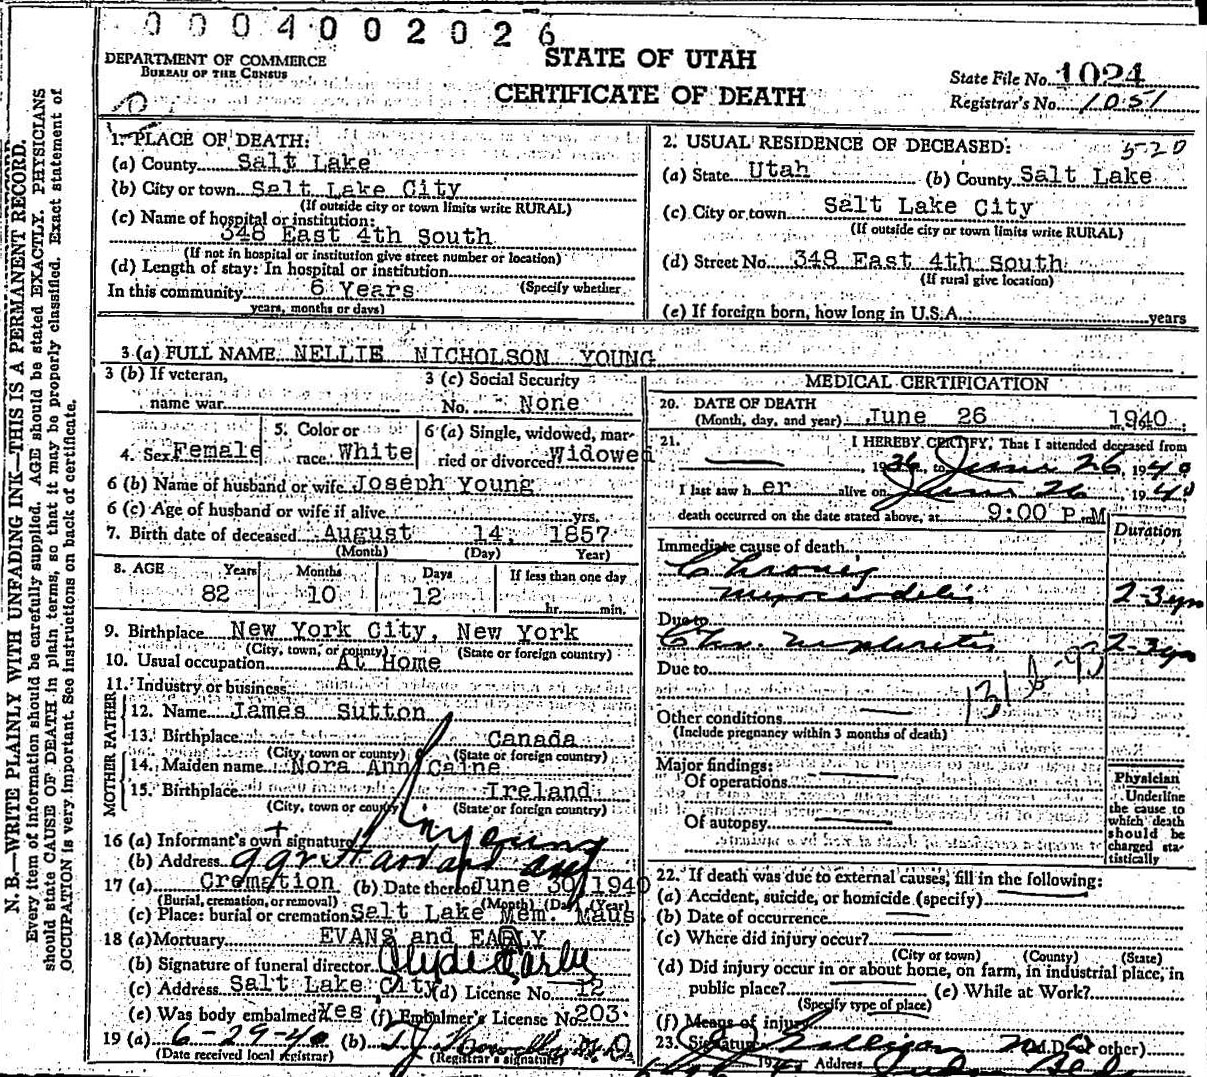 0004002026
DEPARTMENT OF COMMERCE
BUREAU OF THE CENSUS
STATE OF UTAH
CERTIFICATE OF DEATH
State File No. 1024
Registrar's No. 1051
1. PLACE OF DEATH:
(a) County Salt Lake
(b) City or town Salt Lake City
(If outside city or town limits write RURAL)
(c) Name of hospital or institution:
348 East 4th South
(If not in hospital or institution give street number or location)
(d) Length of stay: In hospital or institution
In this community 6 Years (Specify whether
years, months or days)
2. USUAL RESIDENCE OF DECEASED: 5-20
(a) State Utah (b) County Salt Lake
(c) City or town Salt Lake City
(If outside city or town limits write RURAL)
(d) Street No. 348 East 4th South
(If rural give location)
(e) If foreign born, how long in U.S.A. years
3 (a) FULL NAME NELLIE NICHOLSON YOUNG
3 (b) If veteran,
name war
3 (c) Social Security
No. None
4. Sex Female
5. Color or
race White
6 (a) Single, widowed, mar-
ried or divorced Widowed
6 (b) Name of husband or wife Joseph Young
6 (c) Age of husband or wife if alive yrs.
7. Birth date of deceased August 14, 1857
(Month) (Day) Year)
8. AGE Years Months Days If less than one day
82 10 12 hr. min.
9. Birthplace New York City, New York
(City, town, or county) (State or foreign country)
10. Usual occupation At Home
11. Industry or business
FATHER
12. Name James Sutton
13. Birthplace Canada
(City, town or county) (State or foreign country)
MOTHER
14. Maiden name Nora Ann Caine
15. Birthplace Ireland
(City, town or county) (State or foreign country)
16 (a) Informant's own signature
(b) Address
17 (a) Cremation (b) Date thereof June 30, 1940
(Burial, cremation, or removal) (Month) (Day) (Year)
(c) Place: burial or cremation Salt Lake Mem. Maus
18 (a) Mortuary EVANS and EARLY
(b) Signature of funeral director Clyde Early
(c) Address Salt Lake City (d) License No. 12
(e) Was body embalmed? Yes (f) Embalmer's License No. 203
19 (a) 6-29-40 (b)
(Date received local registrar) (Registrar's signature)
MEDICAL CERTIFICATION
20. DATE OF DEATH
(Month, day, and year) June 26 1940
21. I HEREBY CERTIFY, That I attended deceased from
, 1936, to June 26, 1940
I last saw her alive on June 26, 1940
death occurred on the date stated above, at 9:00 P.M
Duration
Immediate cause of death
Chronic
myocarditis 2-3 yrs
Due to
Chr. nephritis 2-3 yrs
Due to
131 b-90
Other conditions
(Include pregnancy within 3 months of death)
Major findings:
Of operations
Of autopsy
Physician
Underline
the cause to
which death
should be
charged sta-
tistically
22. If death was due to external causes, fill in the following:
(a) Accident, suicide, or homicide (specify)
(b) Date of occurrence
(c) Where did injury occur?
(City or town) (County) (State)
(d) Did injury occur in or about home, on farm, in industrial place, in
public place? (e) While at Work?
(Specify type of place)
(f) Means of injury
23. Signature (M.D. or other)
Address
N. B.—WRITE PLAINLY WITH UNFADING INK—THIS IS A PERMANENT RECORD.
Every item of information should be carefully supplied. AGE should be stated EXACTLY. PHYSICIANS
should state CAUSE OF DEATH in plain terms, so that it may be properly classified. Exact statement of
OCCUPATION is very important. See instructions on back of certificate.